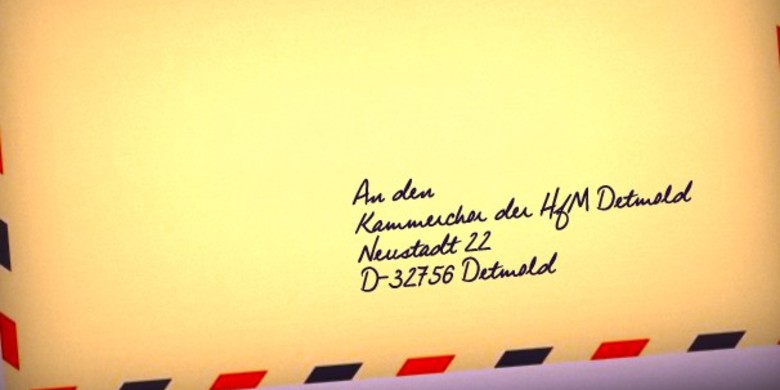 An den
Kammerchor der HfM Detmold
Neustadt 22
D-32756 Detmold